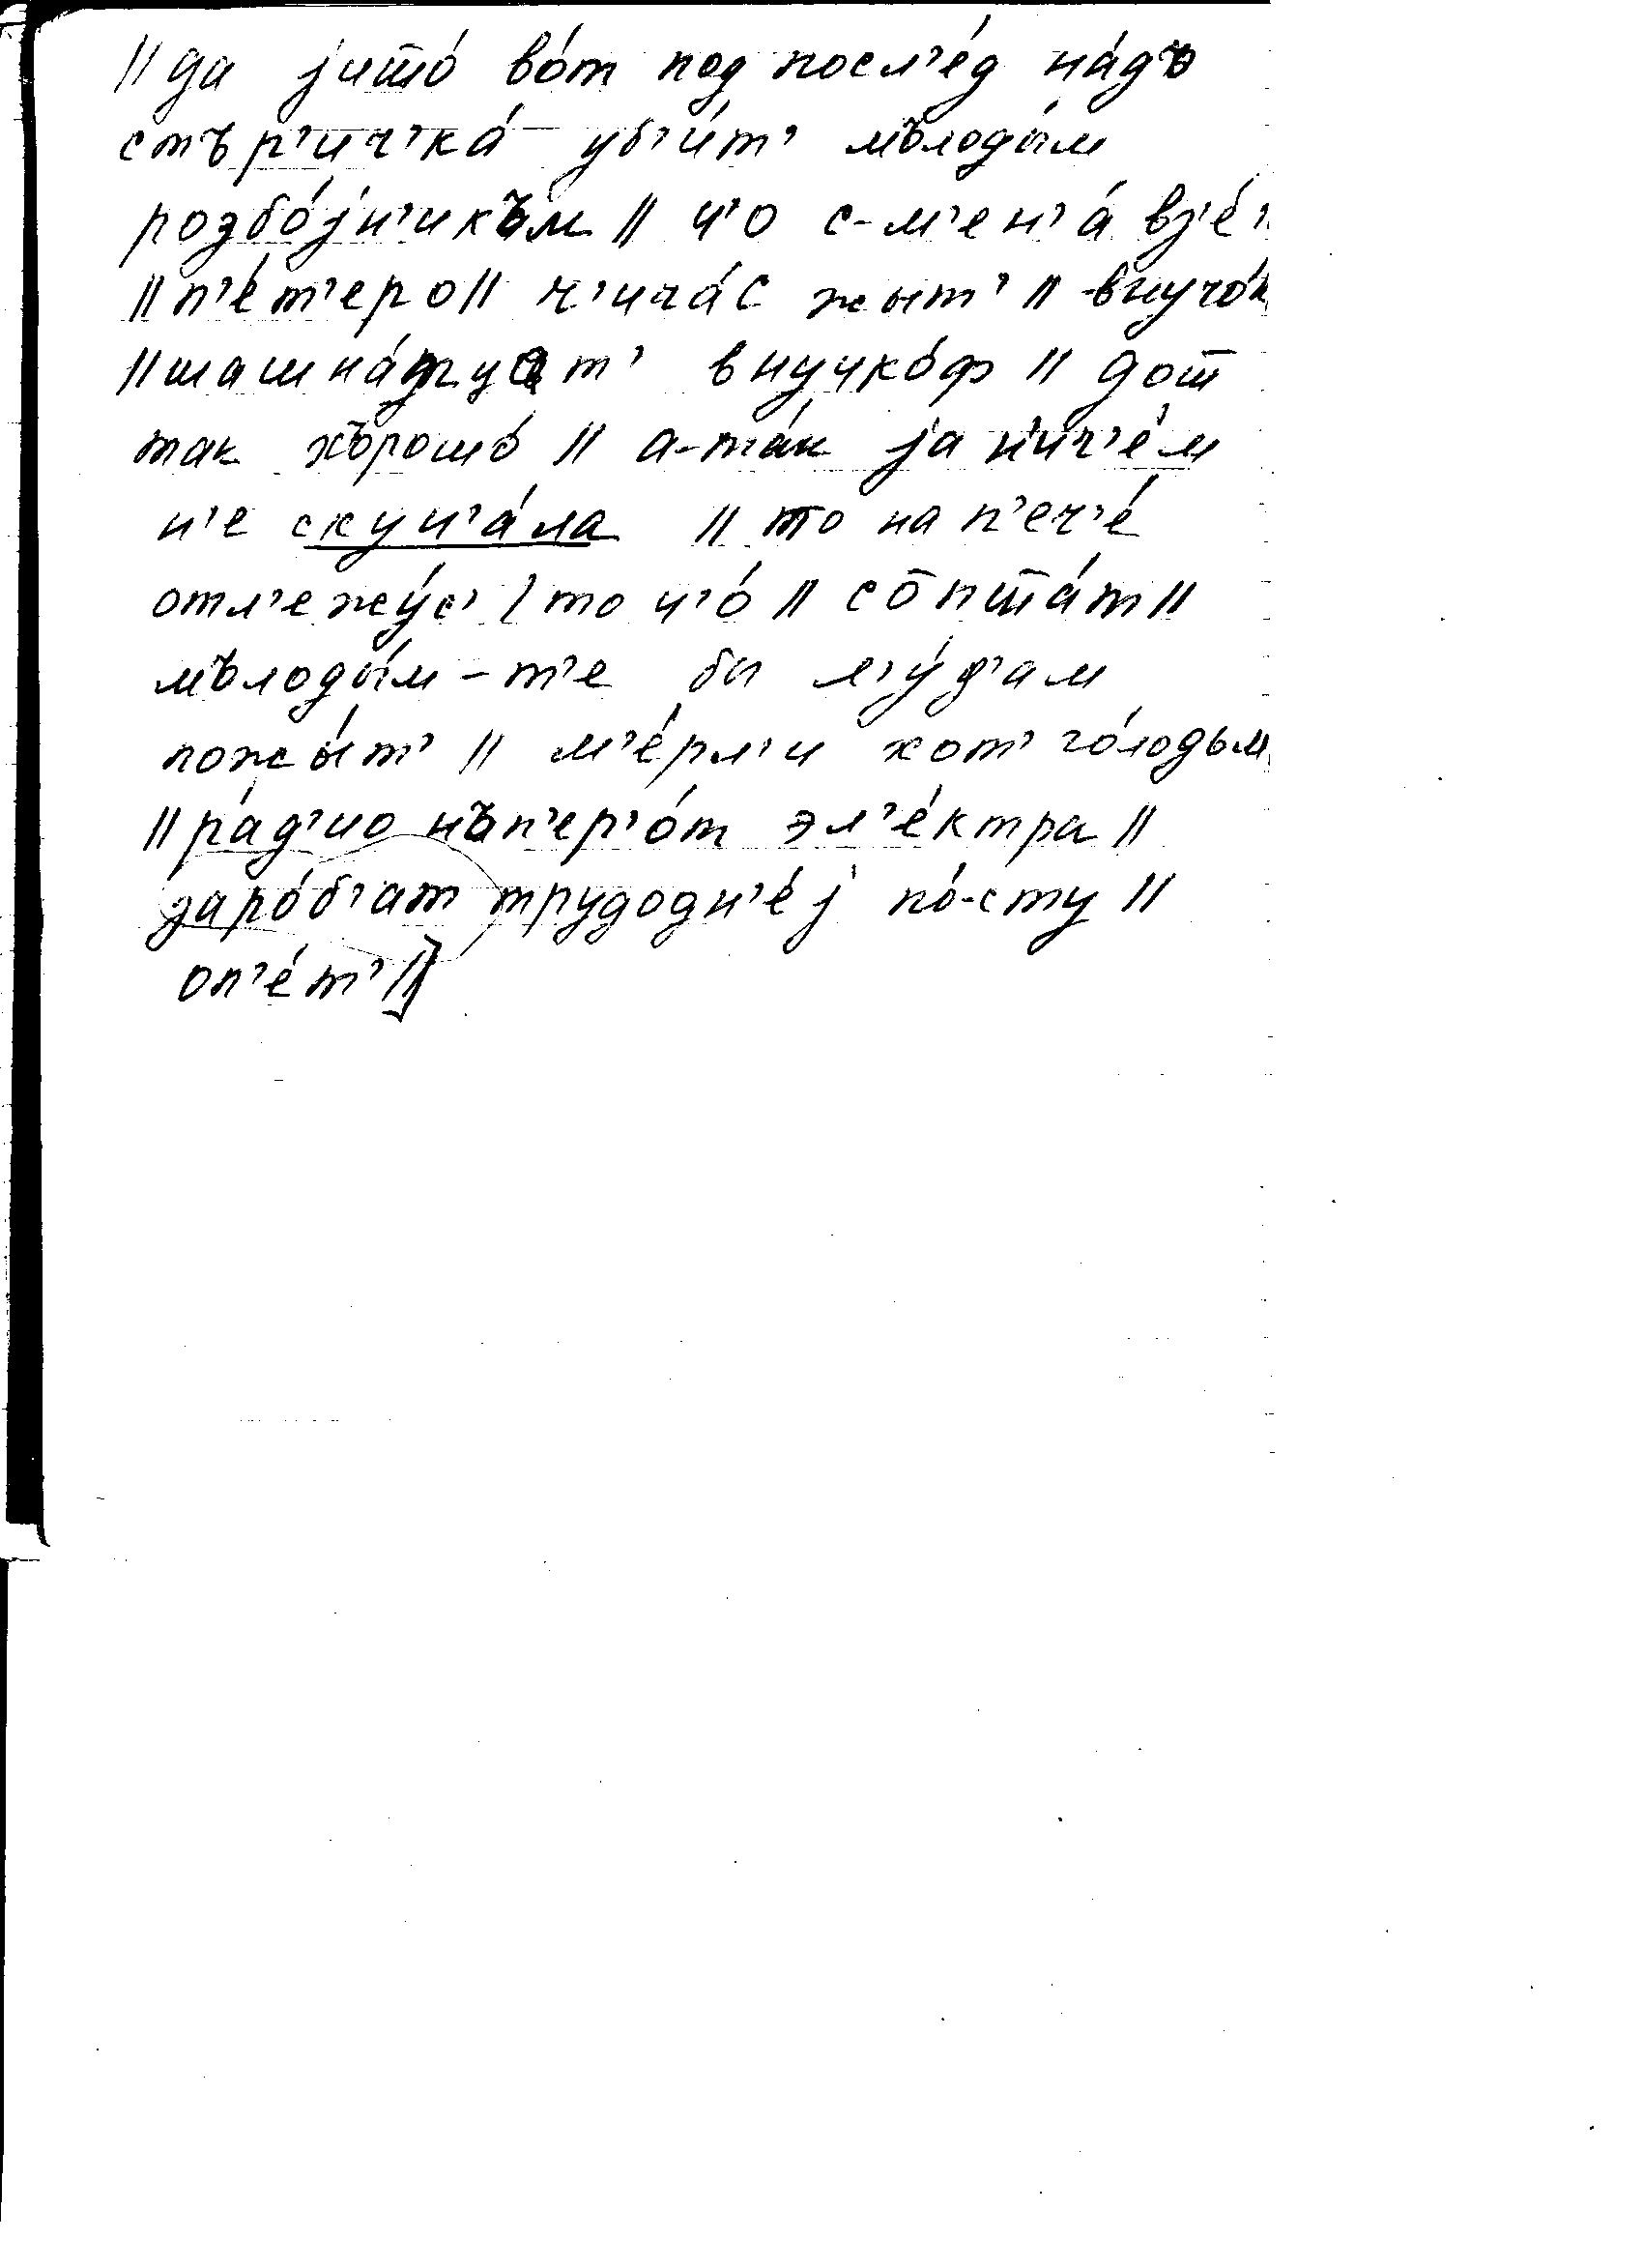 || да jишо́ во́т под посл'е́д на́дъ
стър'ич'ка́ уб'и́т' мълоды́м
розбо́jн'икъм || ч'о с-м'ен'а́ вз'е́т'
|| п'е́т'еро || ч'ича́с жыт' || внучо́к
|| шашна́ццет' внучко́ф || дош
так хърошо́ || а-та́к jа нич'е́м
н'е скуч'а́ла || то на п'еч'е́
отл'ежу́с' / то ч'о́ || сопша́т ||
мълоды́м-т'е бы л'у́д'ам
пожы́т' || м'е́рл'и хот' го́лодъм
|| ра́д'ио нъп'ер'о́т эл'е́ктра ||
заро́б'ат трудодн'е́j по́-сту ||
оп'е́т' ||]